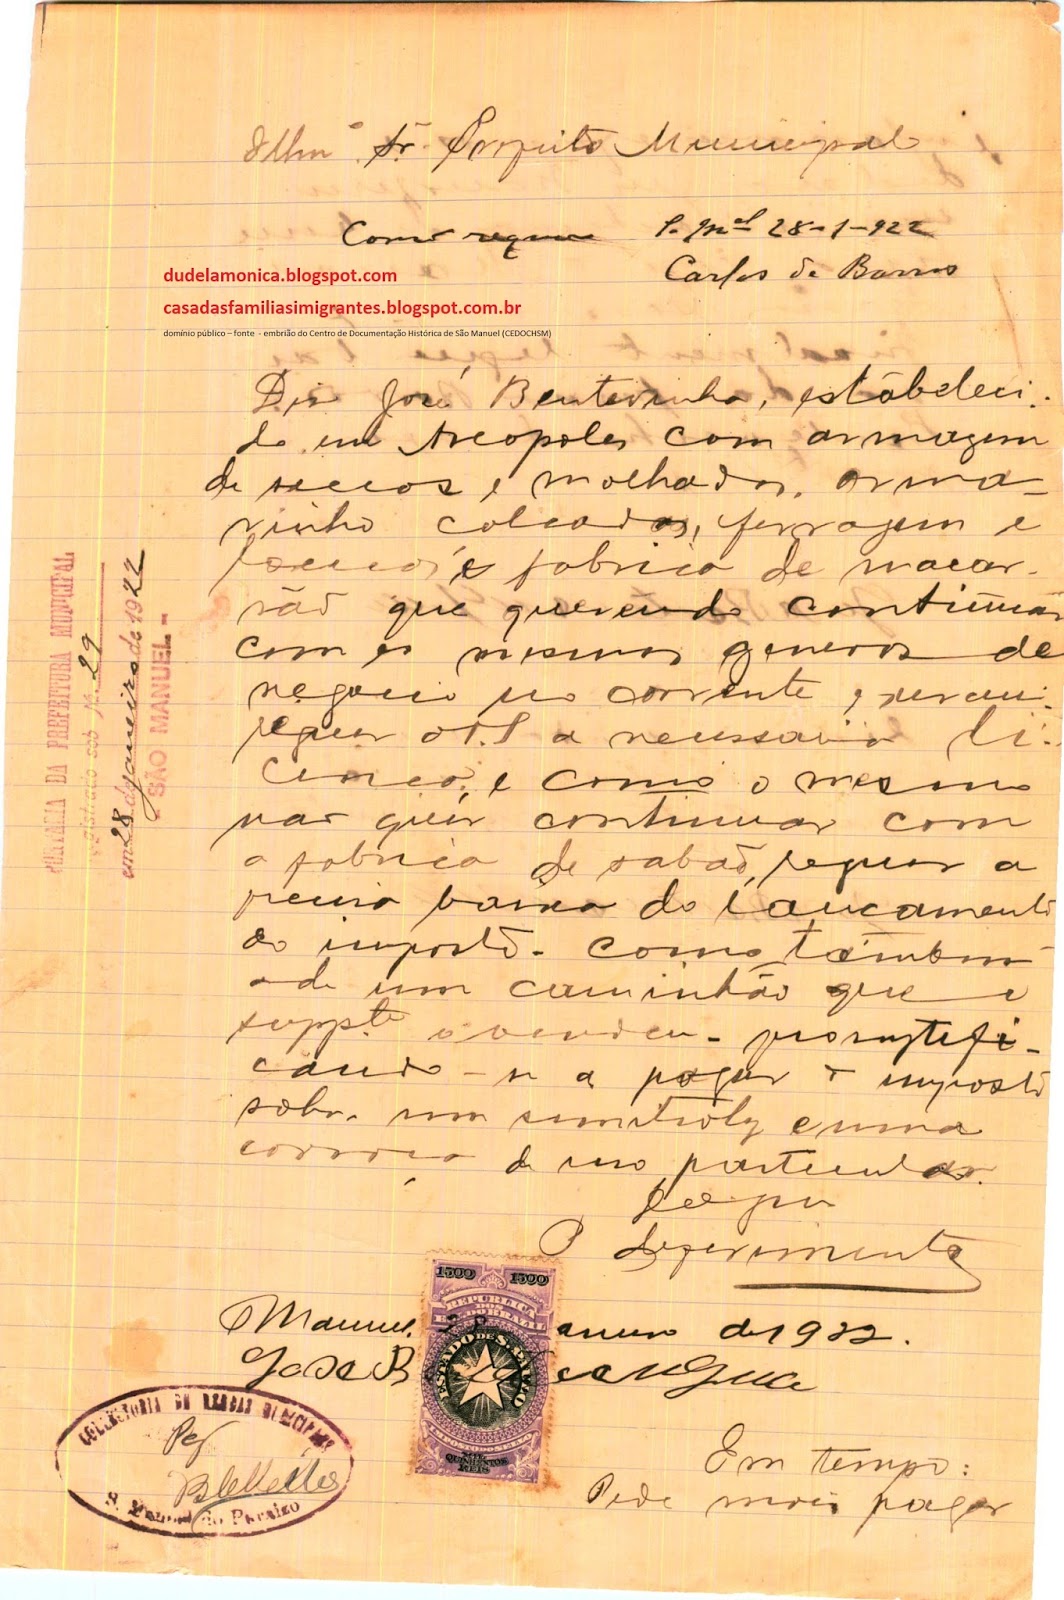 Illmº Sr. Prefeito Municipal
Como requer S. Mel 28-1-922
Carlos de Barros
dudelamonica.blogspot.com
casadasfamiliasimigrantes.blogspot.com.br
domínio público – fonte - embrião do Centro de Documentação Histórica de São Manuel (CEDOCHSM)
Diz José Bentevinha, estabeleci-
do em Areopoles com armazem
de seccos e molhados, arma-
rinho calcados, ferragem e
louças e fabrica de macar-
rão que querendo continuar
com os mesmos generos de
negocio no corrente
requer a V.S. a necessaria li-
cença, e como o mesmo
nao quer continuar com
a fabrica de sabão, requer a
precisa baixa do lancamento
do imposto. como tambem
de um caminhão que o
suppte o vendeu - promptefi-
cando-se a pagar o imposto
sobre um semitroly e uma
corroça de uso particular.
P. deferimento
Manuel, 28 Janeiro de 1922.
José B
Em tempo:
Pede mais pagar
PORTARIA DA PREFEITURA MUNICIPAL
Registrado sob nº 29
em 28 de janeiro de 1922
- SÃO MANUEL -
1500 1500
REPUBLICA
DOS
E.U. DO BRAZIL
ESTADO DE S. PAULO
IMPOSTO DO SELLO
MIL
QUINHENTOS
REIS
COLLECTORIA DE RENDAS MUNICIPAES
Pg
S. Manuel do Paraizo